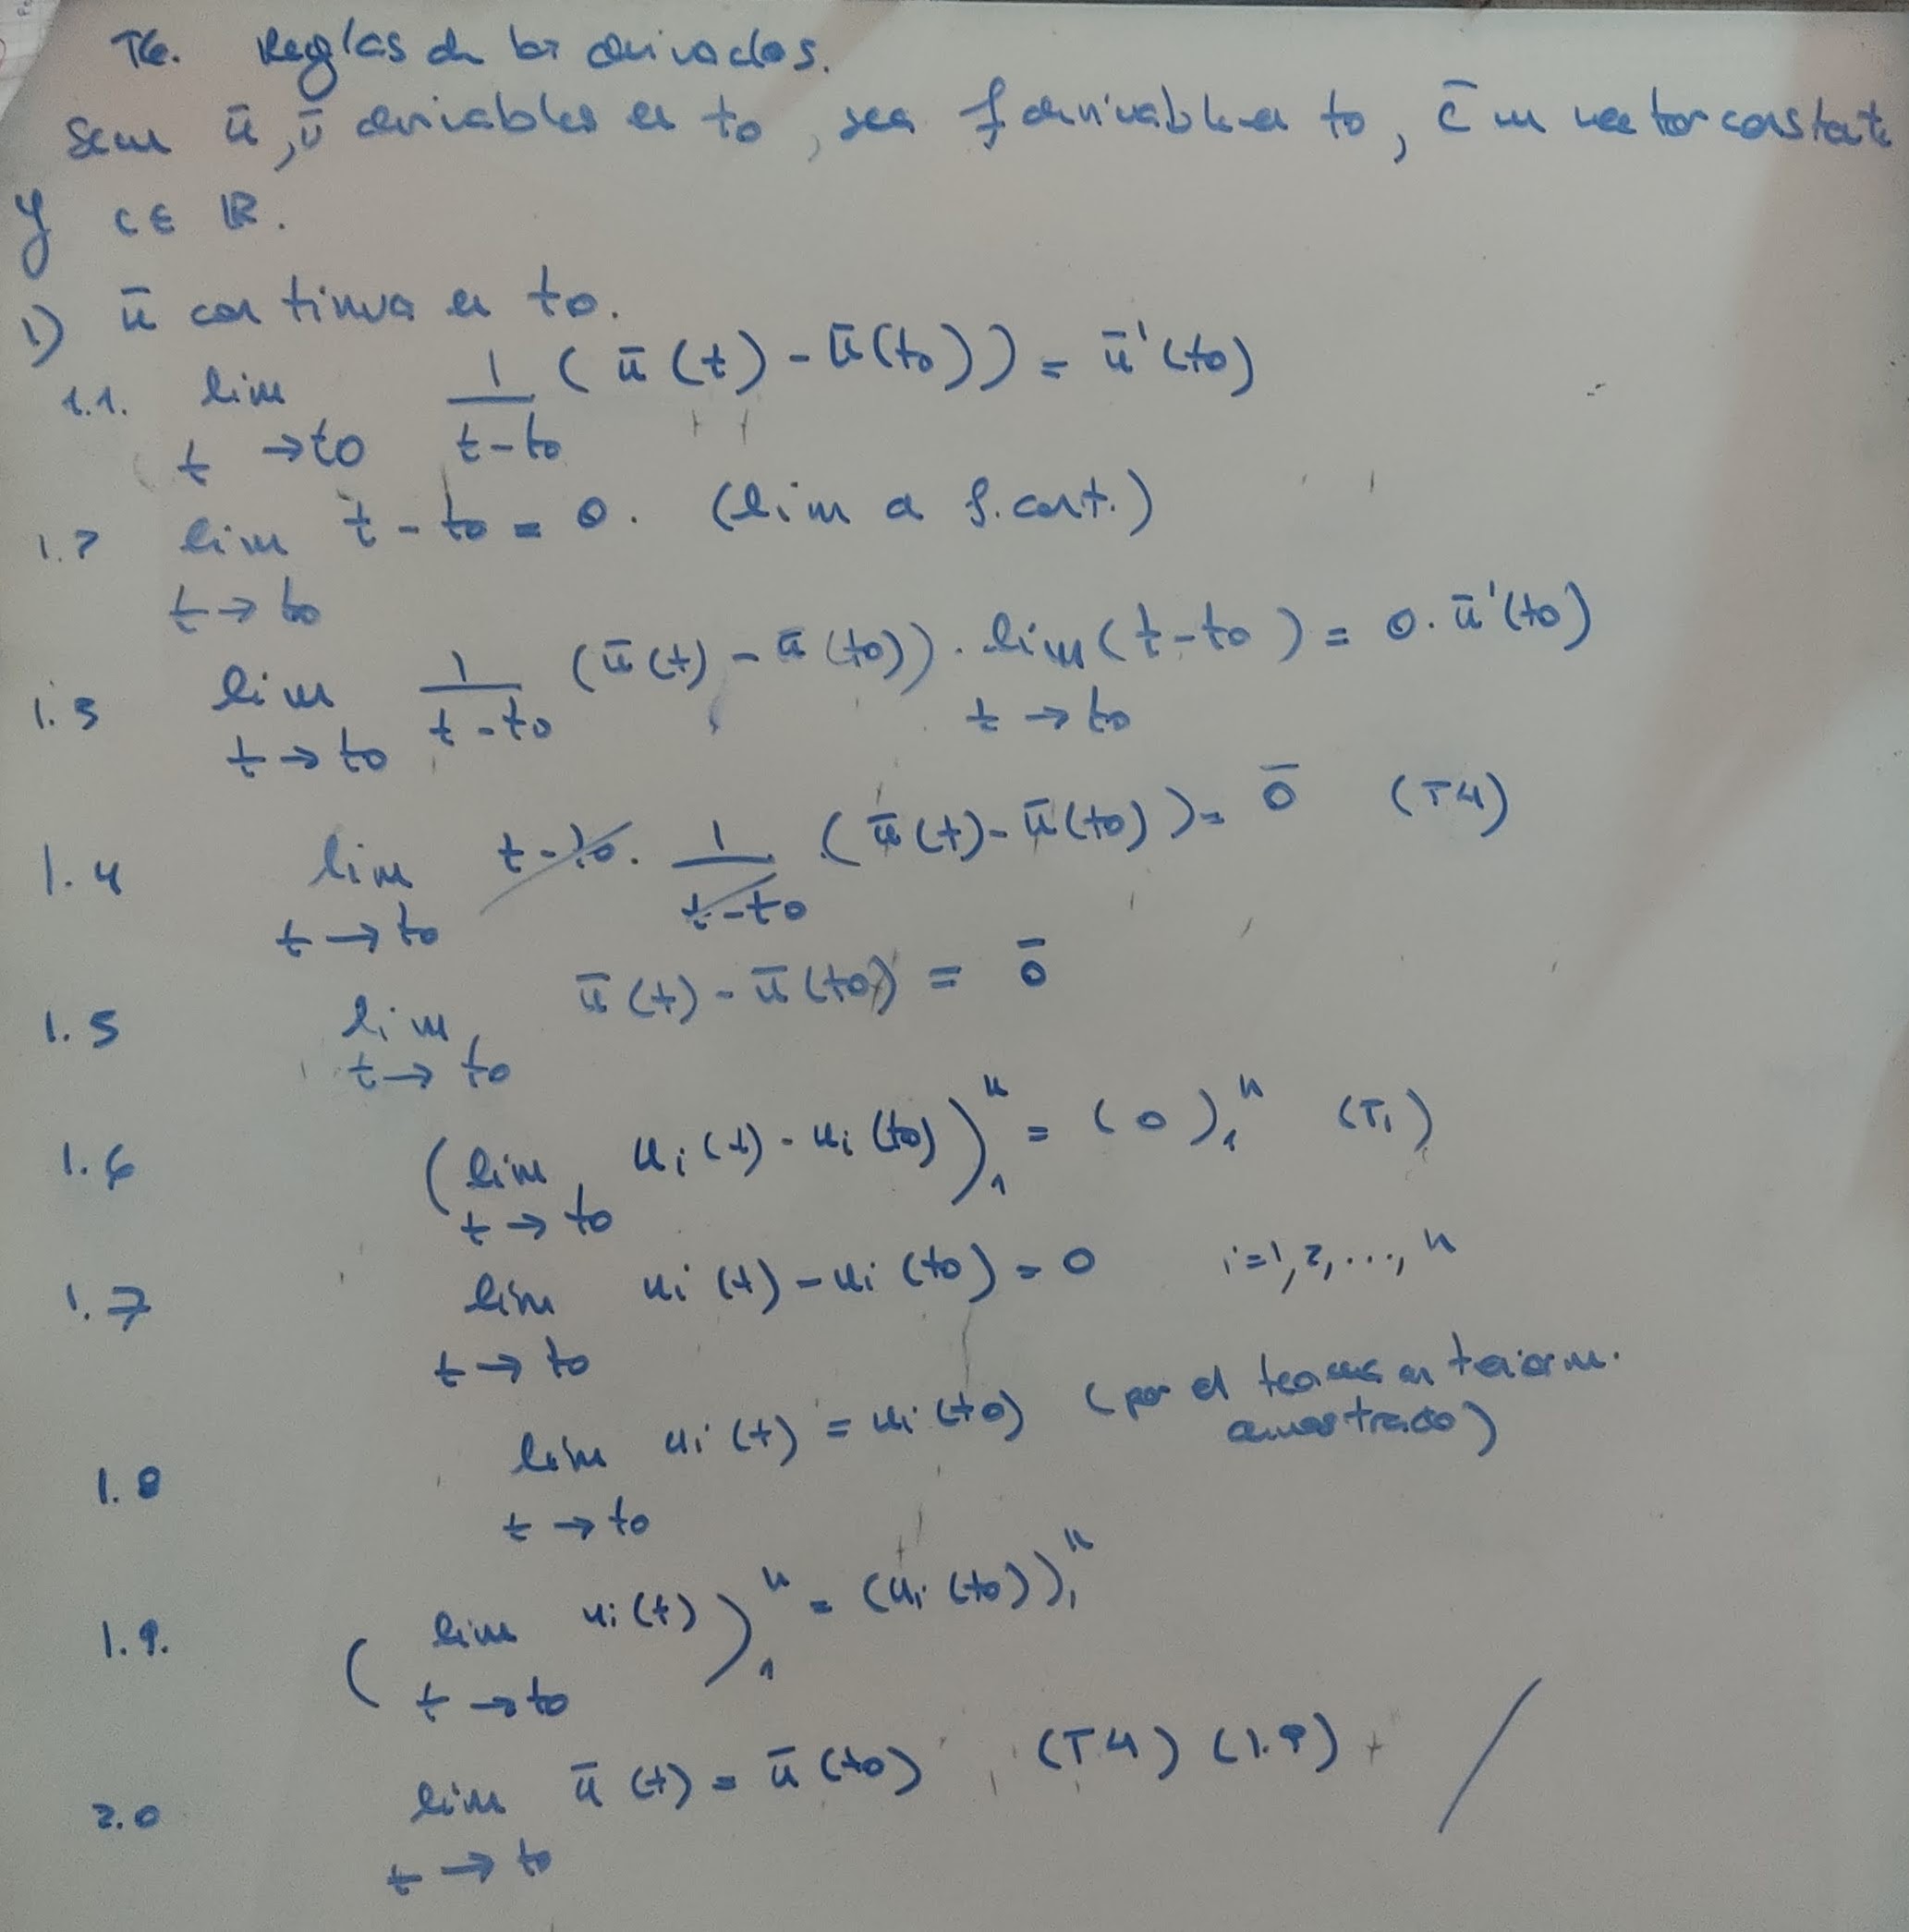 T6. Reglas de las derivadas.
Sean ū, v̄ derivables en to, sea f derivable en to, c̄ un vector constante
y c ∈ ℝ.
1) ū continua en to.
1.1. lim t → to 1/(t - to) (ū(t) - ū(to)) = ū'(to)
1.2 lim t → to t - to = 0. (lim de f. cont.)
1.3 lim t → to 1/(t - to) (ū(t) - ū(to)) · lim t → to (t - to) = 0 · ū'(to)
1.4 lim t → to t - to · 1/(t - to) (ū(t) - ū(to)) = 0̄ (T4)
1.5 lim t → to ū(t) - ū(to) = 0̄
1.6 (lim t → to ui(t) - ui(to))₁ⁿ = (0)₁ⁿ (T1)
1.7 lim t → to ui(t) - ui(to) = 0 i=1,2,...,n
1.8 lim t → to ui(t) = ui(to) (por el teorema anteriorm.
demostrado)
1.9. (lim t → to ui(t))₁ⁿ = (ui(to))₁ⁿ
2.0 lim t → to ū(t) = ū(to) (T4) (1.9)